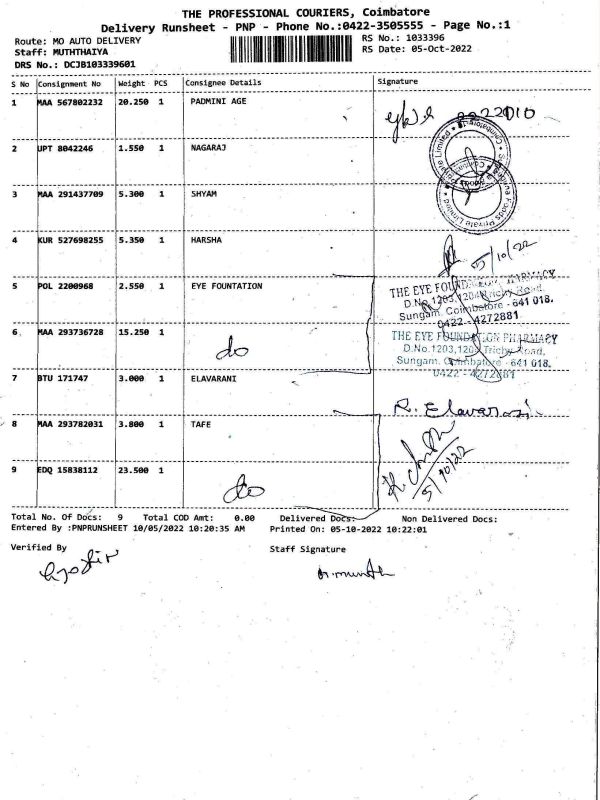 THE PROFESSIONAL COURIERS, Coimbatore
Delivery Runsheet - PNP - Phone No.:0422-3505555 - Page No.:1
Route: MO AUTO DELIVERY
RS No.: 1033396
Staff: MUTHTHAIYA
RS Date: 05-Oct-2022
DRS No.: DCJB103339601
S No Consignment No Weight PCS Consignee Details Signature
1 MAA 567802232 20.250 1 PADMINI AGE
2 UPT 8042246 1.550 1 NAGARAJ
3 MAA 291437709 5.300 1 SHYAM
4 KUR 527698255 5.350 1 HARSHA
5/10/22
5 POL 2200968 2.550 1 EYE FOUNTATION
THE EYE FOUNDATION PHARMACY
D.No.1203,1204 Trichy Road,
Sungam, Coimbatore - 641 018.
0422 - 4272881
6 MAA 293736728 15.250 1
do
THE EYE FOUNDATION PHARMACY
D.No.1203,1204 Trichy Road,
Sungam, Coimbatore - 641 018.
0422 - 4272881
7 BTU 171747 3.000 1 ELAVARANI
R. Elavarasi
8 MAA 293782031 3.800 1 TAFE
5/10/22
9 EDQ 15838112 23.500 1
do
Total No. Of Docs: 9 Total COD Amt: 0.00 Delivered Docs: Non Delivered Docs:
Entered By :PNPRUNSHEET 10/05/2022 10:20:35 AM Printed On: 05-10-2022 10:22:01
Verified By Staff Signature